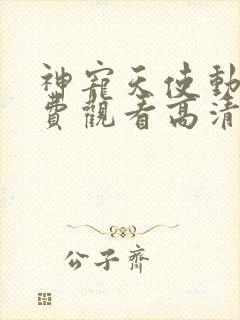 神寵天使動
費觀看高清
公子齊